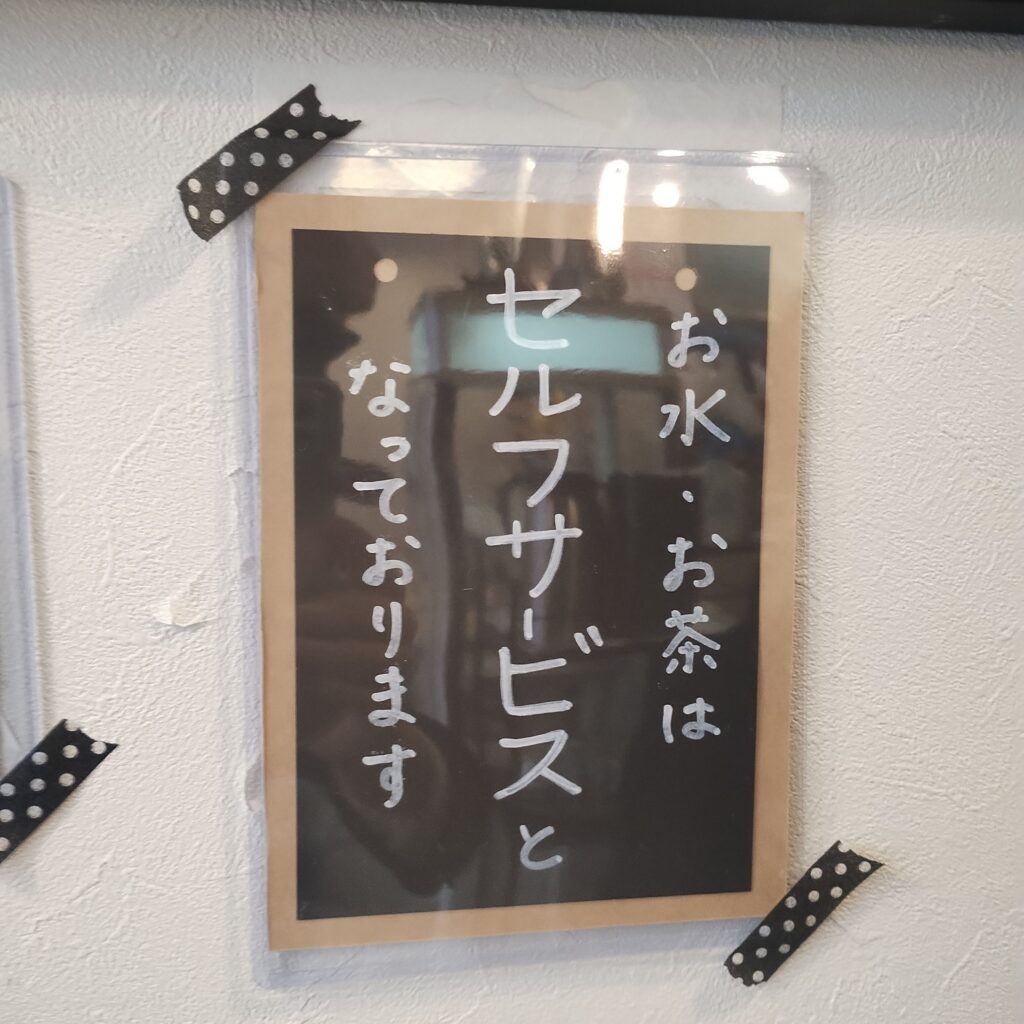 お水・お茶は
セルフサービスと
なっております